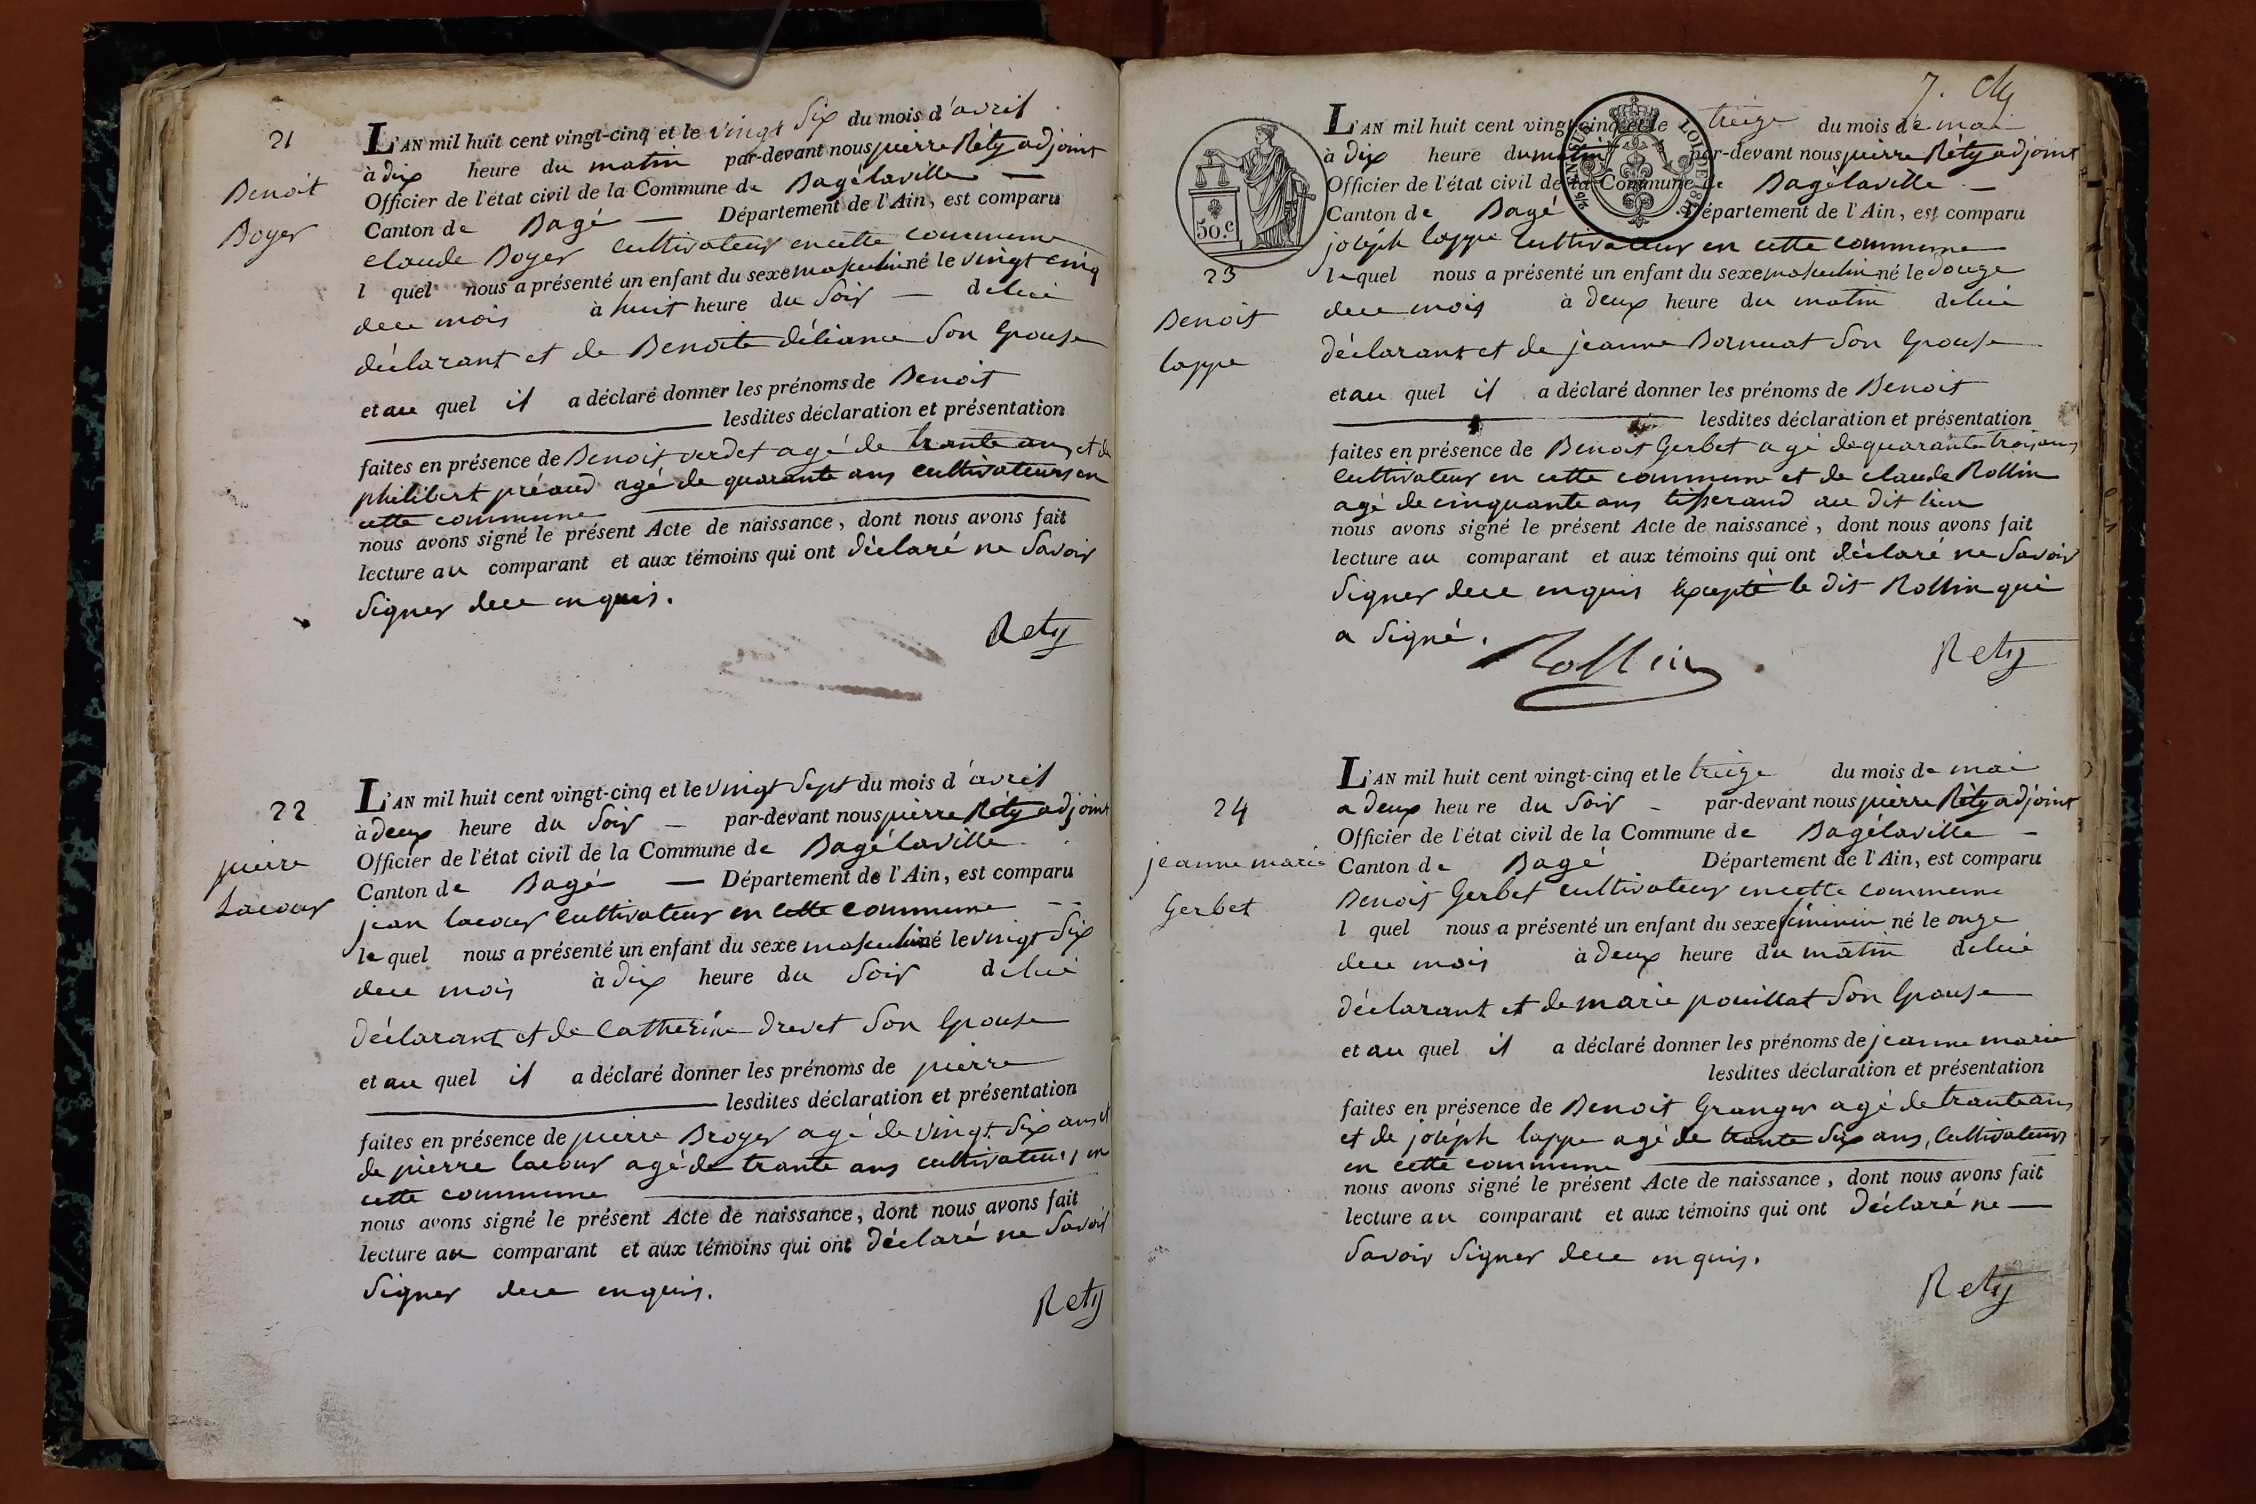 21
Benoit
Boyer
L'AN mil huit cent vingt-cinq et le vingt Six du mois d'avril
à dix heure du matin par-devant nous pierre Réty adjoint
Officier de l'état civil de la Commune de Bagélaville
Canton de Bagé — Département de l'Ain, est comparu
claude Boyer cultivateur en cette commune
l quel nous a présenté un enfant du sexe masculin né le vingt cinq
du ce mois à huit heure du Soir — de lui
déclarant et de Benoite déliance Son Epouse
et au quel il a déclaré donner les prénoms de Benoit
lesdites déclaration et présentation
faites en présence de Benoit verdet agé de trante ans et de
philibert préaud agé de quarante ans cultivateurs en
cette commune
nous avons signé le présent Acte de naissance, dont nous avons fait
lecture au comparant et aux témoins qui ont déclaré ne Savoir
Signer de ce enquis.
Rety
22
pierre
Lacour
L'AN mil huit cent vingt-cinq et le vingt Sept du mois d'avril
à deux heure du Soir — par-devant nous pierre Réty adjoint
Officier de l'état civil de la Commune de Bagélaville
Canton de Bagé — Département de l'Ain, est comparu
jean lacour cultivateur en cette commune
le quel nous a présenté un enfant du sexe masculin né le vingt Six
du ce mois à dix heure du Soir de lui
déclarant et de Catherine drevet Son Epouse
et au quel il a déclaré donner les prénoms de pierre
lesdites déclaration et présentation
faites en présence de pierre Broyer agé de vingt Six ans et
de pierre lacour agé de trante ans cultivateurs en
cette commune
nous avons signé le présent Acte de naissance, dont nous avons fait
lecture au comparant et aux témoins qui ont déclaré ne Savoir
Signer de ce enquis.
Rety
7.
50.c
LOI DE 1816
23
Benoit
lappe
L'AN mil huit cent vingt-cinq et le treize du mois de mai
à dix heure du matin par-devant nous pierre Réty adjoint
Officier de l'état civil de la Commune de Bagélaville —
Canton de Bagé Département de l'Ain, est comparu
joséph lappe cultivateur en cette commune
le quel nous a présenté un enfant du sexe masculin né le douze
du ce mois à deux heure du matin de lui
déclarant et de jeanne Bornuat Son Epouse
et au quel il a déclaré donner les prénoms de Benoit
lesdites déclaration et présentation
faites en présence de Benoit Gerbet agé de quarante trois ans
cultivateur en cette commune et de claude Rollin
agé de cinquante ans tisserand au dit lieu
nous avons signé le présent Acte de naissance, dont nous avons fait
lecture au comparant et aux témoins qui ont déclaré ne Savoir
Signer de ce enquis Excepté le dit Rollin qui
a Signé.
Rollin
Rety
24
jeanne marie
Gerbet
L'AN mil huit cent vingt-cinq et le treize du mois de mai
a deux heure du Soir — par-devant nous pierre Réty adjoint
Officier de l'état civil de la Commune de Bagélaville —
Canton de Bagé Département de l'Ain, est comparu
Benoit Gerbet cultivateur en cette commune
l quel nous a présenté un enfant du sexe féminin né le onze
du ce mois à deux heure du matin de lui
déclarant et de marie pouillat Son Epouse
et au quel il a déclaré donner les prénoms de jeanne marie
lesdites déclaration et présentation
faites en présence de Benoit Granger agé de trante ans
et de joséph lappe agé de trante Six ans, Cultivateurs
en cette commune
nous avons signé le présent Acte de naissance, dont nous avons fait
lecture au comparant et aux témoins qui ont déclaré ne —
Savoir Signer de ce enquis.
Rety